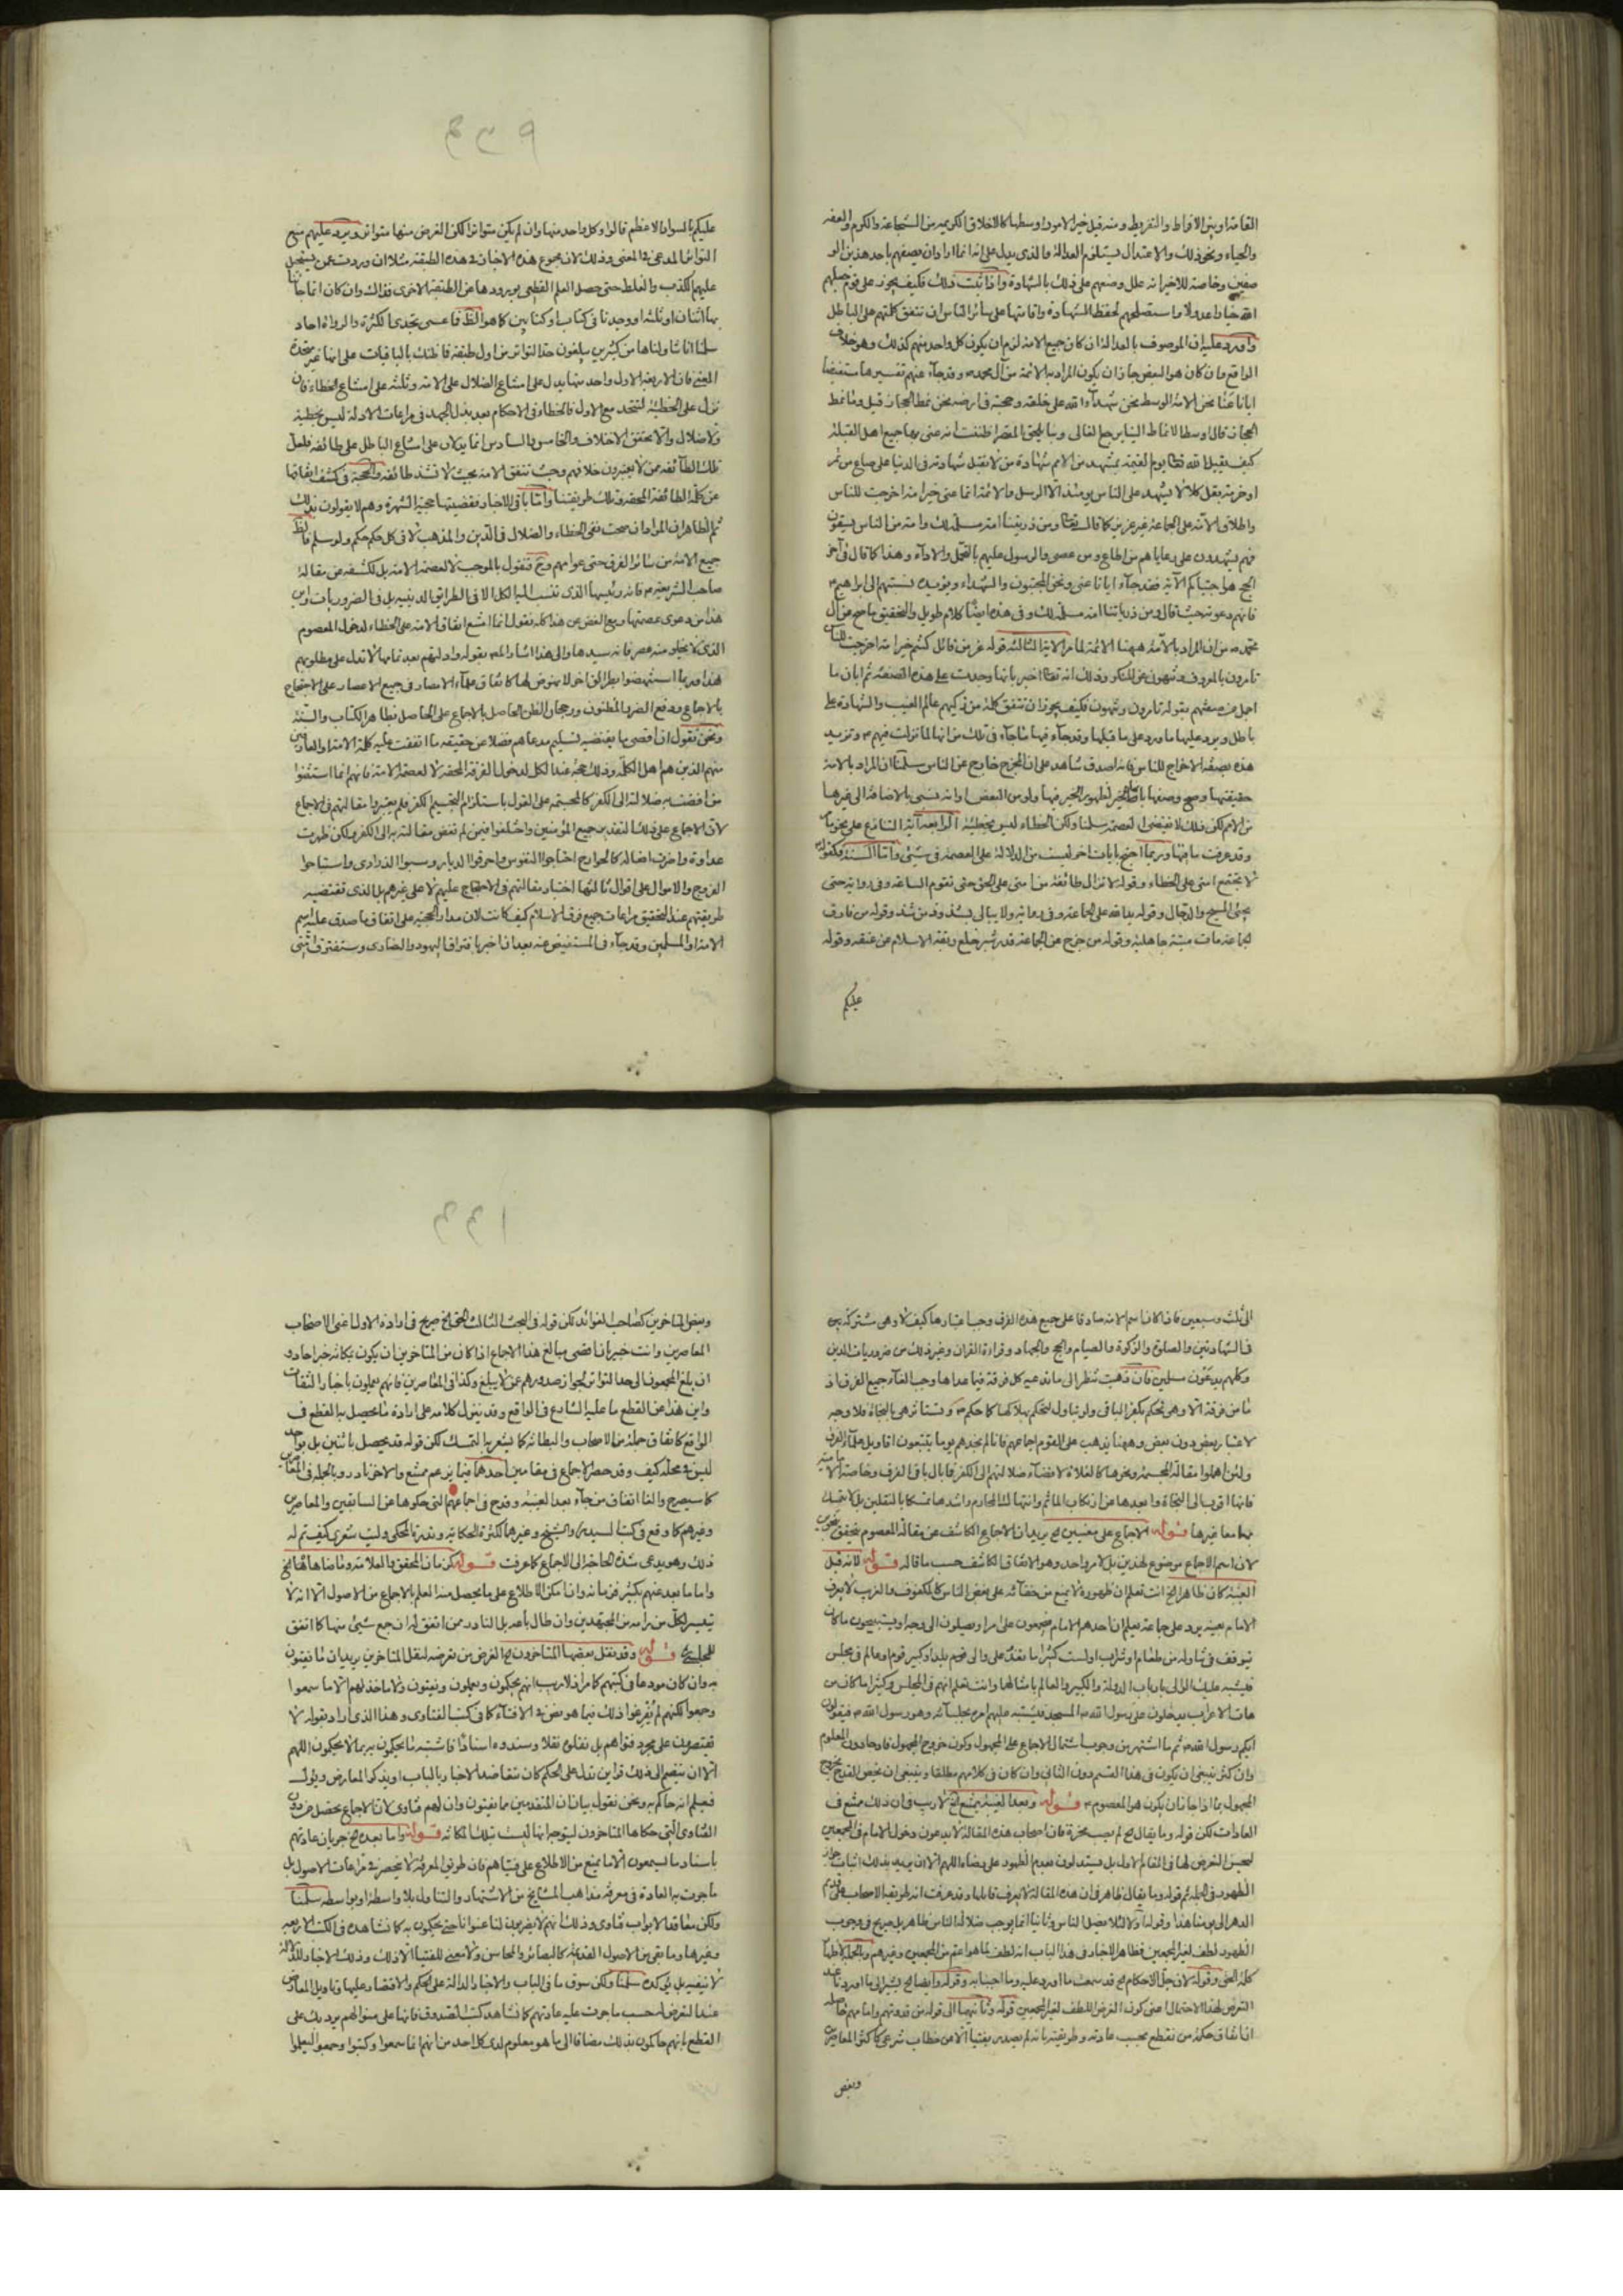 القامة او بين الافراط والتفريط ومنه قيل خير الامور اوسطها كالاخلاق الكريمه من الشجاعة والكرم والعفه
والحياء ونحو ذلك والاعتدال يستلزم العدالة والذى يدل على انه انما اراد ان يصفهم باحد هذين الو
صفين وخاصة للاخير انه علل وصفهم على ذلك بالشهادة واذا ثبت ذلك فكيف يجوز على قوم جعلهم
الله خيارا عدولا واستصلحهم لحفظ الشهادة واقامتها على سائر الناس ان تتفق كلمتهم على الباطل
واورد عليه ان الموصوف بالعدالة ان كان جميع الامة لزم ان يكون كل واحد منهم كذلك وهو خلاف
الواقع وان كان هو البعض جاز ان يكون المراد به الائمة من آل محمد وقد جآء عنهم تفسيرها مستفيضا
ايانا عنا نحن الامة الوسط نحن شهدآء الله على خلقه وحجته فى ارضه نحن نمط الحجاز قيل وما نمط
الحجاز قال اوسط الانماط الينا يرجع الغالى وبنا يلحق المقصر اظننت انه عنى بها جميع اهل القبلة
كيف يقبل الله يوم القيمة بمشهد من الامم شهادة من لا تقبل شهادته فى الدنيا على صاع من تمر
او حزمة بقل كلا لا يشهد على الناس يومئذ الا الرسل والائمة انما عنى خير امة اخرجت للناس
واطلاق الامة على الجماعة غير عزيز كما قال ومن ذريتنا امة مسلمة لك وامة من الناس يسقون
فهم يشهدون على رعاياهم من اطاع ومن عصى والرسول عليهم بالتحمل والادآء وهذا كما قال فى آخر
الحج هو اجتباكم الآية فقد جآء ايانا عنى ونحن المجتبون والشهداء ويؤيده نسبتهم الى ابراهيم
فانهم دعوته حيث قال ومن ذرياتنا امة مسلمة لك وفى هذه ايضا كلام طويل والتحقيق ما صح عن آل
محمد من ان المراد بالامة ههنا الائمة لما مر الاية الثالثة قوله عز من قائل كنتم خير امة اخرجت للناس
تامرون بالمعروف وتنهون عن المنكر وذلك انه اخبر بانها وجدت على هذه الصفة ثم ابان ما
اجل من صفتهم بقوله تامرون وتنهون فكيف يجوز ان تتفق كلمة من زكيهم عالم الغيب والشهادة على
باطل ويرد عليها ما ورد على ما قبلها وقد جآء فيها ما جآء فى تلك من انها انما نزلت فيهم وتزيد
هذه بصفة الاخراج للناس فانه اصدق شاهد على ان المخرج خارج عن الناس سلمنا ان المراد بالامة
حقيقتها وصح وصفها بالخير لظهور الخير فيها ولو من البعض او انه نسبى بالاضافة الى غيرها
من الامم لكن ذلك لا يقتضى العصمة سلمنا ولكن الخطاء ليس بخطيئة الرابعة آية التنازع على نحو ما
وقد عرفت ما فيها وربما احتج بايات اخر ليست من الدلالة على العصمة فى شئ واما السنة فكقوله
لا تجتمع امتى على الخطاء وقوله لا تزال طائفة من امتى على الحق حتى تقوم الساعة وفى رواية حتى
يجئ المسيح والدجال وقوله يد الله على الجماعة وفى رواية ولا يبالى بشذوذ من شذ وقوله من فارق
الجماعة مات ميتة جاهلية وقوله من خرج عن الجماعة قدر شبر خلع ربقة الاسلام عن عنقه وقوله
عليكم
عليكم بالسواد الاعظم قالوا وكل واحد منها وان لم يكن متواترا لكن الغرض منها متواتر ويرد عليهم منع
التواتر المدعى فى المعنى وذلك لان مجموع هذه الاخبار فى هذه الطبقة مثلا ان وردت عمن يستحيل
عليهم الكذب والغلط حتى حصل العلم القطعى بورودها عن الطبقة الاخرى فذاك وان كان انما جاء
بها اثنان او ثلثة او وجدنا فى كتاب او كتابين كما هو الظ فما عسى تجدى الكثرة والرواة احاد
سلمنا انا تناولناها من كثيرين يبلغون حد التواتر من اول طبقة فما ظنك بالباقيات على انها غير متحدة
المعنى فان الاربعة الاول واحد منها يدل على امتناع الضلال على الامة وثلثة على امتناع الخطاء فان
نزل على الخطيئة لتتحد مع الاول فالخطاء فى الاحكام بعد بذل الجهد فى مراعات الادلة ليس بخطيئة
ولا ضلال والا لتحقق الاختلاف والخامس والسادس انما يدلان على امتناع الباطل على طائفة فلعل
تلك الطائفة ممن لا يعتبرون خلافهم وحيث تتفق الامة بحيث لا تشذ طائفة والحجة فى كشف اتفاقها
عن كلمة الطائفة المحقة وتلك طريقتنا واما باقى الاخبار فقضيتها حجية الشهرة وهم لا يقولون بذلك
ثم الظاهر ان المراد ان صحت نفى الخطاء والضلال فى الدين والمذهب لا فى كل حكم حكم ولو سلم فالظ
جميع الامة من سائر الفرق حتى عوامهم وح فنقول بالموجب لا لعصمة الامة بل لكشفه عن مقالة
صاحب الشريعة فانه رئيسها الذى تنسب اليه الكل لا فى الطرائق الدينية بل فى الضروريات واين
هذا من دعوى عصمتها ومع الغض عن هذا كله نقول انما امتنع اتفاق الامة على الخطاء لدخول المعصوم
الذى لا يخلو منه عصر فانه سيدها والى هذا اشار المص بقوله وادلتهم بعد تمامها لا تدل على مطلوبهم
هذا وربما استنهضوا بطرائق اخر لا ينهض لها كاتفاق علمآء الامصار فى جميع الاعصار على الاحتجاج
بالاجماع ودفع الضرر المظنون ورجحان الظن الحاصل بالاجماع على الحاصل بظاهر الكتاب والسنة
ونحن نقول ان اقصى ما يقتضيه تسليم مدعاهم فضلا عن حقيقته ما اتفقت عليه كلمة الامة او العارفين
منهم الذين هم اهل الكلمة وذلك حجة عند الكل لدخول الفرقة المحقة لا لعصمة الامة فانهم انما استثنوا
من افضت به ضلالته الى الكفر كالمجسمة على القول باستلزام التجسيم الكفر فلم يعتبروا مقالتهم فى الاجماع
لان الاجماع على ذلك انعقد من جميع المؤمنين واختلفوا فيمن لم تفض مقالته به الى الكفر لكن ظهرت
عداوته واخزت افعاله كالخوارج اجتاحوا النفوس واحرقوا الديار وسبوا الذرارى واستباحوا
الفروج والاموال على اقوال ثالثها اعتبار مقالتهم فى الاحتجاج عليهم لا على غيرهم بل الذى تقتضيه
طريقتهم عند التحقيق مراعات جميع فرق الاسلام كيف كانت لان مدار الحجية على اتفاق ما صدق عليه اسم
الامة او المسلمين وقد جآء فى المستفيض عنه بعد ان اخبر بافتراق اليهود والنصارى وستفترق امتى
الى ثلث وسبعين فاذا كان اسم الامة صادقا على جميع هذه الفرق وجب اعتبارها كيف لا وهى مشتركة
فى الشهادتين والصلوة والزكوة والصيام والحج والجهاد وقراءة القران وغير ذلك من ضروريات الدين
وكلهم يدعون مسلمين فان ذهبت تنظر الى ما تدعيه كل فرقة فيما عداها وجب الغآء جميع الفرق اذ
ما من فرقة الا وهو تحكم بكفر الباقى ولو بتاول لتحكم بهلاكها كما حكم وتستاثر هى بالنجاة فلا وجه
لاعتبار بعض دون بعض وههنا يذهب على القوم اجماعهم فانا لم نجدهم يوما يتتبعون اقاويل علمآء الفرق
ولئن اهملوا مقالة المجسمة ونحوها كالغلاة لافضآء ضلالتهم الى الكفر فما بال باقى الفرق وخاصة الامامية
فانها اقرب الى النجاة وابعدها عن ارتكاب الماثم وانتهاك المحارم واشدها تمسكا بالثقلين بل لا يتمسك
بهما معا غيرها قوله الاجماع على معنيين الخ يريد ان الاجماع الكاشف عن مقالة المعصوم يتحقق بنحوين
لان اسم الاجماع موضوع لهذين بل لامر واحد وهو الاتفاق الكاشف حسب ما قاله قوله لانه قبل
الغيبة كان ظاهرا الخ انت تعلم ان ظهوره لا يمنع من خفآئه على بعض الناس كالمكفوف والغريب لا يعرف
الامام بعينه يرد على جماعة يعلم ان احدهم الامام
يتوقف فى تناوله من طعام او شراب اولست كثيرا ما تفد على والى قوم بلد او كبير قوم او عالم فى مجلس
فيشتبه عليك الوالى بارباب الدولة والكبير والعالم بامثالهما وانت تعلم انهم فى المجلس وكثيرا ما كان من
هات الاعراب يدخلون على رسول الله المسجد فيشتبه عليهم امره بجلسآئه وهو رسول الله فيقولون
ايكم رسول الله ثم ما اشتهر من وجوب اشتمال الاجماع على المجهول وكون خروج المجهول قادحا دون المعلوم
وان كثر ينبغى ان يكون فى هذا القسم دون الثانى وان كان فى كلامهم مطلقا وينبغى ان يخص القدح بخروج
المجهول بما اذا جاز ان يكون هو المعصوم قوله وبعد الغيبة يمتنع الخ لا ريب فى ان ذلك ممتنع فى
العادات لكن قوله وما يقال الخ لم يصب محزه فان اصحاب هذه المقالة لا يدعون دخول الامام فى المجمعين
ليحسن التعرض لها فى المقام الاول بل يستدلون بعدم الظهور على رضاه اللهم الا ان يريد بذلك اثبات جواز
الظهور فى الجملة ثم قوله وما يقال ظاهر فى ان هذه المقالة لا يعرف قائلها وقد عرفت انه طريقة الاصحاب على قديم
الدهر الى يومنا هذا وقوله اولا لئلا يضل الناس وثانيا انما يوجب ضلالة الناس ظاهر بل صريح فى وجوب
الظهور لطف لغير المجمعين فظاهر الاخبار فى هذا الباب انه لطف لما هو اعم من المجمعين وغيرهم
كلمة الحق وقوله لان جل الاحكام الخ قد سمعت ما اورد عليه وما اجبنا به وقوله وايضا الخ يشير الى ما اوردنا عند
التعرض لهذا الاحتمال اعنى كون الغرض اللطف لغير المجمعين قوله وثانيهما الى قوله من قدوتهم وامامهم
اتفاق حكمة من نقطع بحسب عادته وطريقته بانه لم يصدر بفتيا الا عن خطاب شرعى كاكثر المعاصرين
وبعض
وبعض المتاخرين كصاحب الفوائد لكن قوله فى البحث الثالث الحق الخ صريح فى ارادة الاول اعنى الاصحاب
المعاصرين وانت خبير بان اقصى مبالغ هذا الاجماع اذا كان من المتاخرين ان يكون بمكانة خبر احاد و
ان بلغ المجمعون الى حد التواتر لجواز صدورهم عمن لا يبلغ وكذا فى المعاصرين فانهم يعملون باخبار الثقات
واين هذا من القطع ما عليه الشارع فى الواقع وقد ينزل كلامه على ارادة ما يحصل به القطع فى
الواقع كاتفاق جملة من الاصحاب والبطانة كما يشعر به التمسك لكن قوله قد يحصل باثنين بل بواحد
ليس فى محله كيف وقد حصر الاجماع فى مقامين احدهما فيما يزعم ممتنع والاخر نادر وبالجملة فى المعاصرين
كما سيصرح والغا اتفاق من جآء بعد الغيبة وقدح فى اجماعهم التى حكوها عن السابقين والمعاصرين
وغيرهم كما وقع فى كتب السيد والشيخ وغيرها لكثرة الحكاية وندرة المحكى وليت شعرى كيف تم له
ذلك وهو يدعى شدة الحاجة الى الاجماع كما عرفت قوله كزمان المحقق والعلامة وما ضاهاهما الخ
واما ما بعد عنهم بكثير فى زمانه وان امكن الاطلاع على ما يحصل منه العلم بالاجماع من الاصول الا انه لا
يتيسر لكل من رامه من المجتهدين وان طال باعه بل النادر ممن اتفق له ان جمع شئ منها كما اتفق
للمجلسى قوله وقد نقل بعضها المتاخرون الخ الغرض من تعرضه لنقل المتاخرين يريد ان ما يفتون
به وان كان مودعا فى كتبهم كما مر اذ لا ريب انهم يحكمون ويعملون ويفتون ولا ماخذ لهم الا ما سمعوا
وجمعوا لكنهم لم يفرغوا ذلك فيما هو نص فى الافتآء كما فى كتب الفتاوى وهذا الذى اراد بقوله لا
يقتصرون على مجرد فتواهم بل ينقلون نقلا وسندوه اسنادا فاشتبه ما يحكمون به بما لا يحكمون اللهم
الا ان ينضم الى ذلك قراين تدل على الحكم كان تتعاضد الاخبار بالباب او يذكر المعارض ويؤول
فيعلم انه حاكم به ونحن نقول بيان ان المتقدمين ما يفتون وان لهم فتاوى لان الاجماع يحصل من دون
الفتاوى التى حكاها المتاخرون ليتوجه انها ليست بتلك المكانة قوله واما بعده الخ جريان عادتهم
باسناد ما يسمعون الا ما يمنع من الاطلاع على فتياهم فان طريق المعرفة لا ينحصر فى مراعات الاصول بل
ما جرت به العادة فى معرفة مذاهب المشايخ من الاشتهار والتناول بلا واسطة او بواسطة سلمنا
ولكن معاقد الابواب فتاوى وذلك انهم لا يضربون لنا عنوانا حتى يحكمون به كما نشاهده فى الكتب الاربعة
وغيرها وما بقى من الاصول القديمة كالبصائر والمحاسن ولا معنى للفتيا الا ذلك وذلك الاخبار
لا تنفيه بل تؤكده سلمنا ولكن سوق ما فى الباب والاخبار الدالة على الحكم والاقتصار عليها وتاويل المعارض
عند التعرض له حسب ما جرت عليه عادتهم كما نشاهد كتب الصدوق فانها على منوالهم يريد بك على
القطع بانهم حاكمون بذلك مضافا الى ما هو معلوم لدى كل احد من انهم انما سمعوا وكتبوا وجمعوا ليعملوا